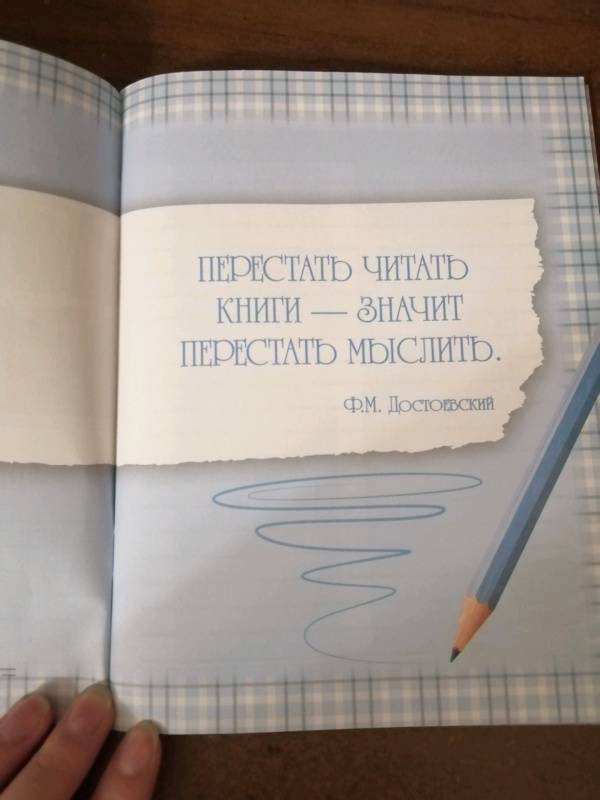 ПЕРЕСТАТЬ ЧИТАТЬ
КНИГИ — ЗНАЧИТ
ПЕРЕСТАТЬ МЫСЛИТЬ.
Ф.М. Достоевский